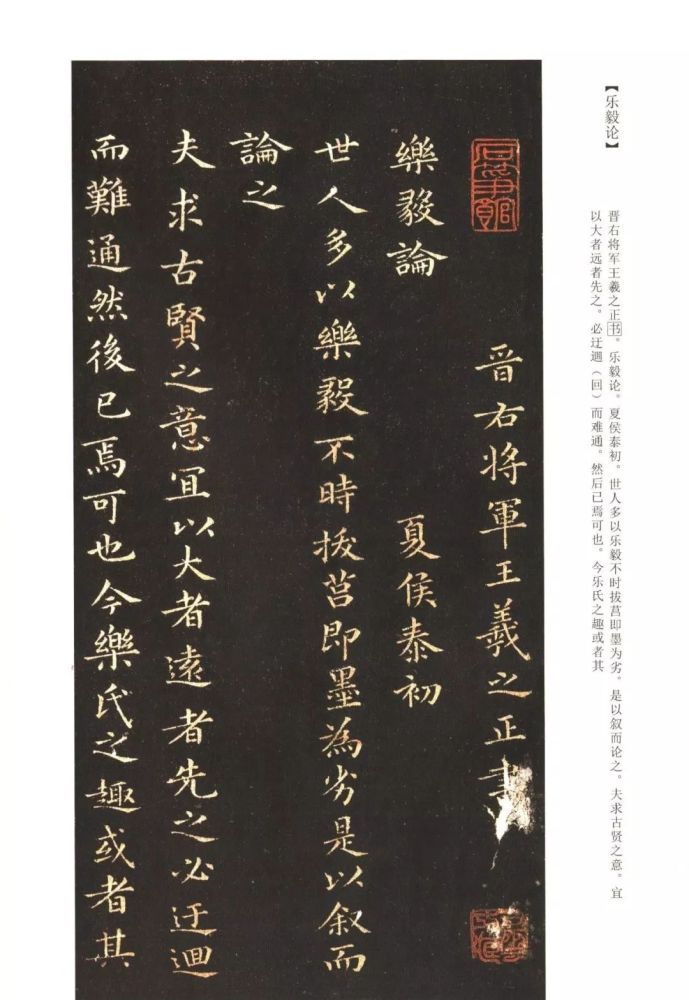 【乐毅论】
晋右将军王羲之正书。乐毅论。夏侯泰初。世人多以乐毅不时拔莒即墨为劣。是以叙而论之。夫求古贤之意。宜
以大者远者先之。必迂迴（回）而难通。然后已焉可也。今乐氏之趣或者其
晋右将軍王羲之正書
樂毅論
夏侯泰初
世人多以樂毅不時拔莒即墨為劣是以叙而
論之
夫求古賢之意宜以大者遠者先之必迂迴
而難通然後已焉可也今樂氏之趣或者其